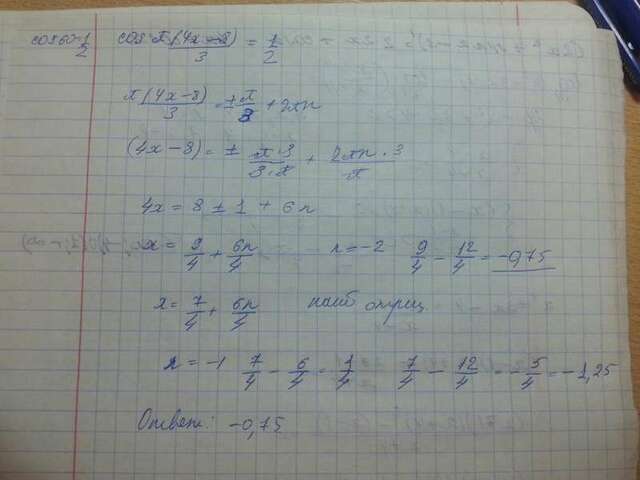 cos60=1/2 cos π(4x-8)/3 = 1/2
π(4x-8)/3 = ±π/3 + 2πn
(4x-8) = ± π·3/3·π + 2πn·3/π
4x = 8 ± 1 + 6n
x = 9/4 + 6n/4 n = -2 9/4 - 12/4 = -0,75
x = 7/4 + 6n/4 наиб отриц.
n = -1 7/4 - 6/4 = 1/4 7/4 - 12/4 = -5/4 = -1,25
Ответ: -0,75